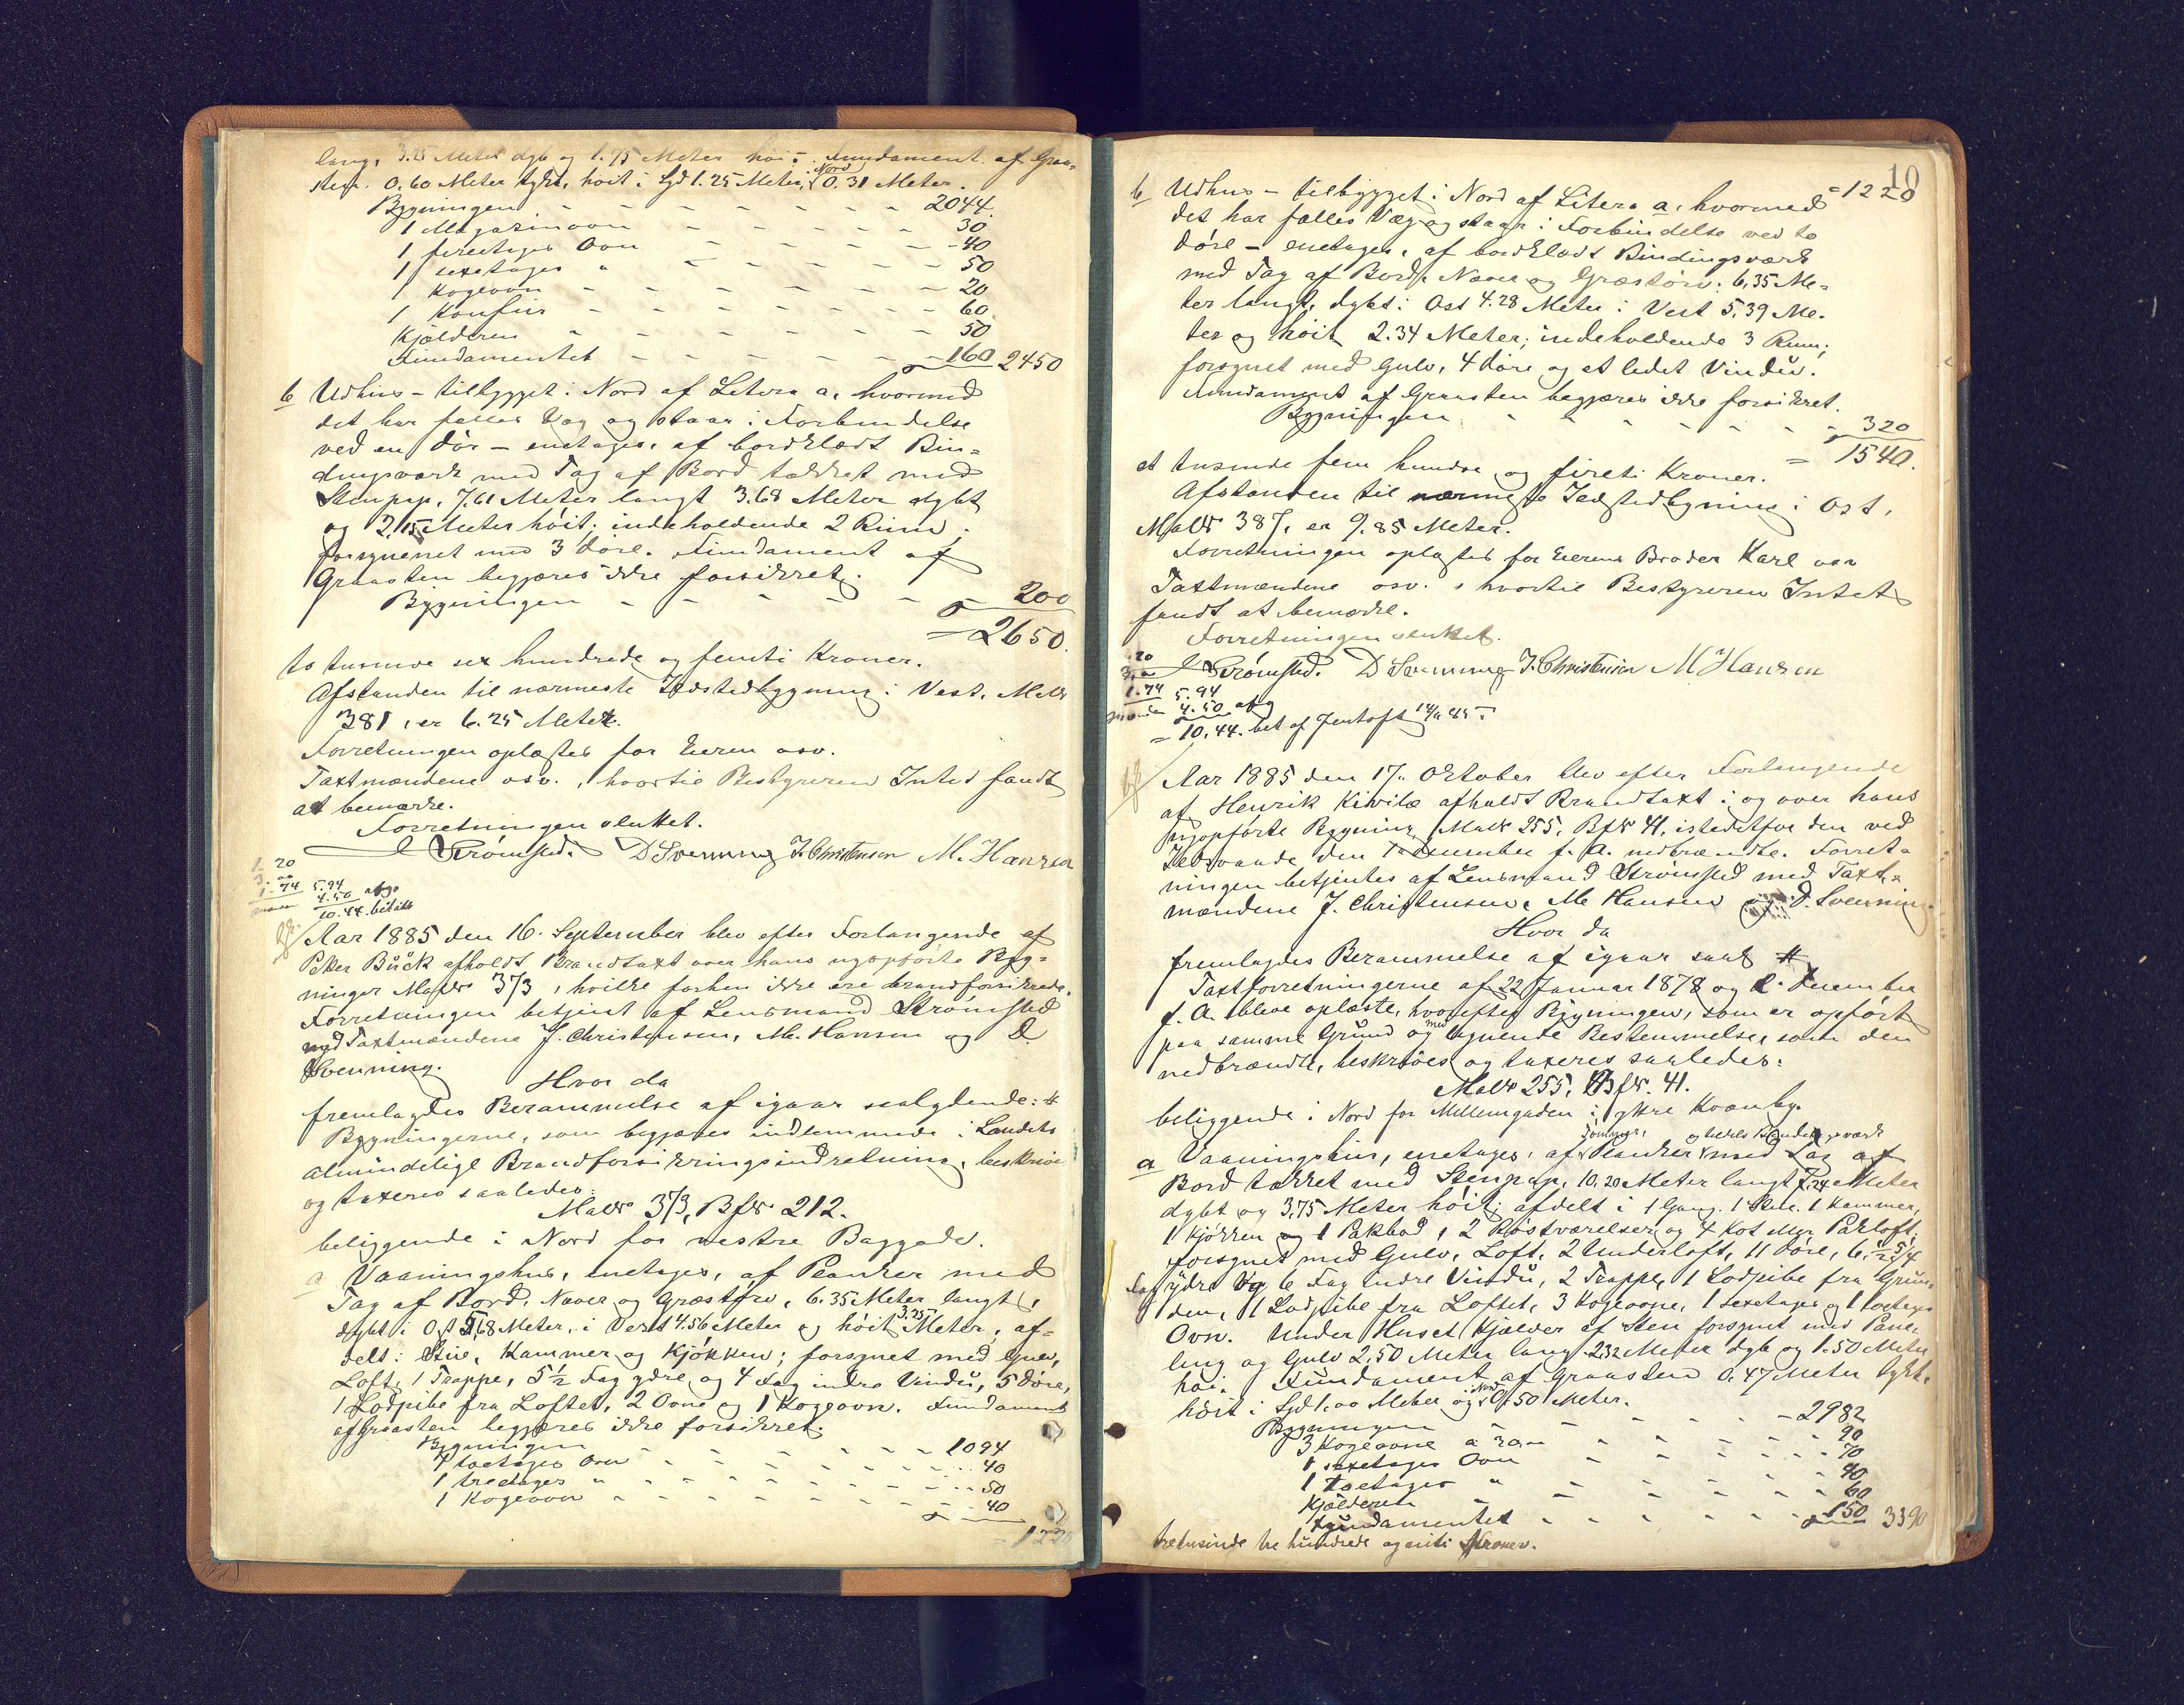 lang, 3.25 Meter dyb og 1.75 Meter høi. Fundament af Graa-
sten. 0.60 Meter tykt, høit i Syd 1.25 Meter, i Nord 0.31 Meter.
Bygningen - - - - - - 2044.
1 Magasinovn - - - - - 30
1 firetages Ovn - - - - - 40
1 sexetages " - - - - - 50
1 Kogeovn - - - - - 20
1 Komfur - - - - - 60
Kjælderen - - - - - 50
Fundamentet - - - - - 160 2450
b Udhus - tilbygget i Nord af Litera a, hvormed
det har fælles Væg og staar i Forbindelse
ved en Dør - enetages, af bordklædt Bin-
dingsværk med Tag af Bord takket med
Stenpap, 7.61 Meter langt 3.68 Meter dybt
og 2.15 Meter høit; indeholdende 2 Rum,
forsynet med 3 Døre. Fundament af
Graasten begjæres ikke forsikret.
Bygningen - - - - - 200
= 2650.
to tusinde sex hundrede og femti Kroner.
Afstanden til nærmeste Ildstedbygning i Vest, MaNr
381, er 6.25 Meter.
Forretningen oplæstes for Eieren osv.
Taxtmændene osv., hvortil Bestyreren Intet fandt
at bemærke.
Forretningen sluttet.
Strömsted. D Svenning J. Christensen M. Hansen
1. 20
3. 00
1. 74 5.94
4.50 afg.
10.44 betalt
Aar 1885 den 16. September blev efter Forlangende af
Peter Bück afholdt Brandtaxt over hans nyopførte Byg-
ninger MaNr 373, hvilke forhen ikke ere brandforsikrede.
Forretningen betjent af Lensmand Strömsted
med Taxtmændene J. Christensen, M. Hansen og D.
Svenning.
Hvor da
fremlagdes Berammelse af igaar saalydende: #
Bygningerne, som begjæres indlemmede i Landets
almindelige Brandforsikringsindretning, beskrives
og taxeres saaledes:
MaNr 373, BfNr 212.
beliggende i Nord for vestre Baggade.
a Vaaningshus, enetages, af Planker med
Tag af Bord, Næver og Græstørv, 6.35 Meter langt,
dybt i Ost 5.68 Meter, i Vest 4.56 Meter og høit 3.25 Meter, af-
delt i Stue, Kammer og Kjøkken; forsynet med Gulv,
Loft, 1 Trappe, 5½ Fag ydre og 4 Fag indre Vindu, 5 Døre,
1 Lodpibe fra Loftet, 2 Ovne og 1 Kogeovn. Fundament
af Graasten begjæres ikke forsikret.
Bygningen - - - - - 1094
1 toetages Ovn - - - - - 40
1 tretages " - - - - - 50
1 Kogeovn - - - - - 40
= 1220
10
b Udhus - tilbygget i Nord af Litera a, hvormed = 1220
det har fælles Væg og staar i Forbindelse ved to
Døre - enetages, af bordklædt Bindingsværk
med Tag af Bord, Næver og Græstørv; 6,35 Me-
ter langt, dybt i Ost 4.28 Meter i Vest 5,39 Me-
ter og høit 2.34 Meter; indeholdende 3 Rum;
forsynet med Gulv, 4 Døre og et ledet Vindu.
Fundament af Graasten begjæres ikke forsikret.
Bygningen - - - - - 320
= 1540.
et tusinde fem hundre og fireti Kroner.
Afstanden til nærmeste Ildstedbygning i Ost,
MaNr 387, er 9.85 Meter.
Forretningen oplæstes for Eierens Broder Karl osv
Taxtmændene osv., hvortil Bestyreren Intet
fandt at bemærke.
Forretningen sluttet.
Strömsted. D Svenning J. Christensen M Hansen
1.74 5.94
4.50 afg
= 10.44. bet af Jentoft 14/11 85.
Aar 1885 den 17. Oktober blev efter Forlangende
af Henrik Kivilæ afholdt Brandtaxt i og over hans
nyopførte Bygning MaNr 255, BfNr 41, istedetfor den ved
Ildsvaade den December f. A. nedbrændte. Forret-
ningen betjentes af Lensmand Strömsted med Taxt-
mændene J. Christensen, M. Hansen og D. Svenning.
Hvor da
fremlagdes Berammelse af igaar saal #
Taxtforretningerne af 22 Januar 1878 og 2. December
f. A. bleve oplæste, hvorefter Bygningen, som er opført
paa samme Grund og med lignende Bestemmelse, som den
nedbrændte, beskrives og taxeres saaledes:
MaNr 255, BfNr. 41.
beliggende i Nord for Mellemgaden i ytre Kvænby.
a Vaaningshus, enetages, af Tømmer, Planker og tildels Bindingsværk med Tag af
Bord takket med Stenpap, 10.20 Meter langt 7.24 Meter
dybt og 3,75 Meter høit; afdelt i 1 Gang. 1 Stue. 1 Kammer,
1 Kjøkken og 1 Pakbod, 2 Kvistværelser og 4 Kot samt Pakloft;
forsynet med Gulv, Loft, 2 Underloft, 11 Døre, 6,
Fag ydre og 6 Fag indre Vindu, 2 Trapper, 1 Lodpibe fra Grun-
den, 1 Lodpibe fra Loftet, 3 Kogeovne, 1 sexetages og 1 toetages
Ovn. Under Huset Kjælder af Sten forsynet med Pane-
ling og Gulv 2,50 Meter lang 2,32 Meter dyb og 1.50 Meter
høi. Fundament af Graasten 0.47 Meter tykt,
høit i Syd 1,00 Meter og i Nord 0,50 Meter.
Bygningen - - - - - 2982
3 Kogeovne a 30,- - - - 90
1 sexetages Ovn - - - - 70
1 toetages " - - - - 40
Kjælderen - - - - 60
Fundamentet - - - - 150 3390
tretusinde tre hundrede og niti Kroner.